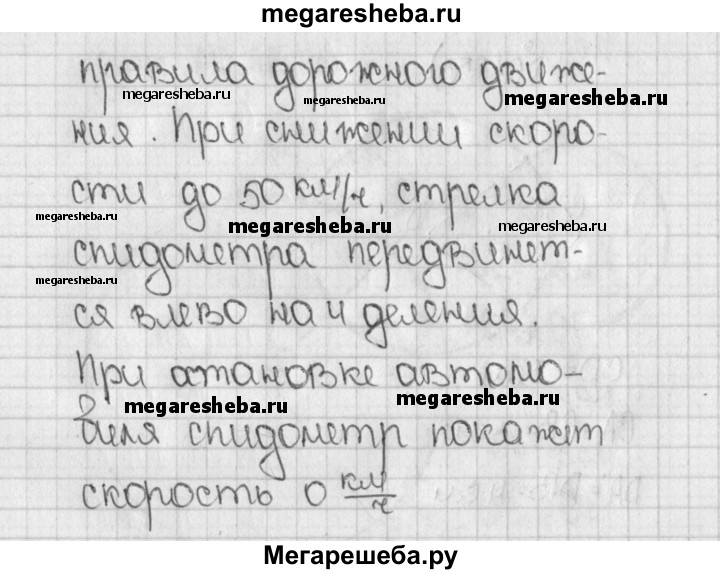 megaresheba.ru
правила дорожного движе-
megaresheba.ru megaresheba.ru megaresheba.ru
ния. При снижении скоро-
сти до 50 км/ч, стрелка
megaresheba.ru megaresheba.ru megaresheba.ru
спидометра передвинет-
megaresheba.ru
ся влево на 4 деления.
При остановке автомо-
megaresheba.ru megaresheba.ru
биля спидометр покажет
скорость 0 км/ч
Мегарешеба.ру